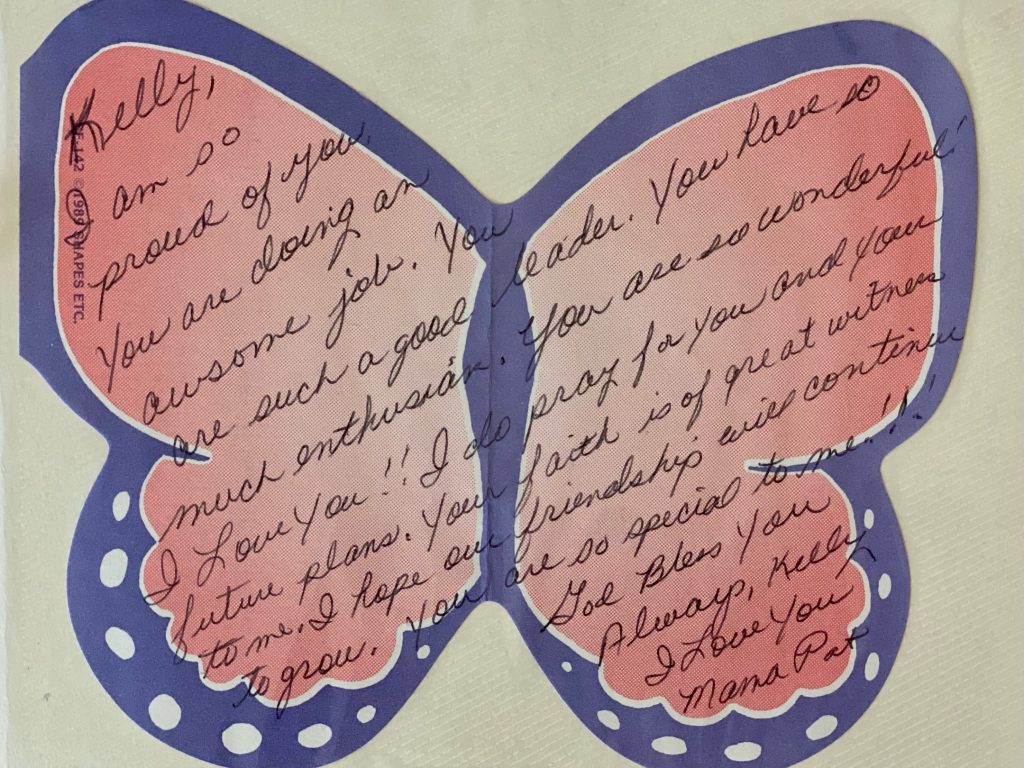 Kelly,
I am so
proud of you.
You are doing an
awsome job. You
are such a good leader. You have so
much enthusiasm. You are so wonderful!
I Love You!! I do pray for you and your
future plans. Your faith is of great witness
to me. I hope our friendship will continue
to grow. You are so special to me!!!
God Bless You
Always, Kelly
I Love You
Mama Pat
© 1989 SHAPES ETC.